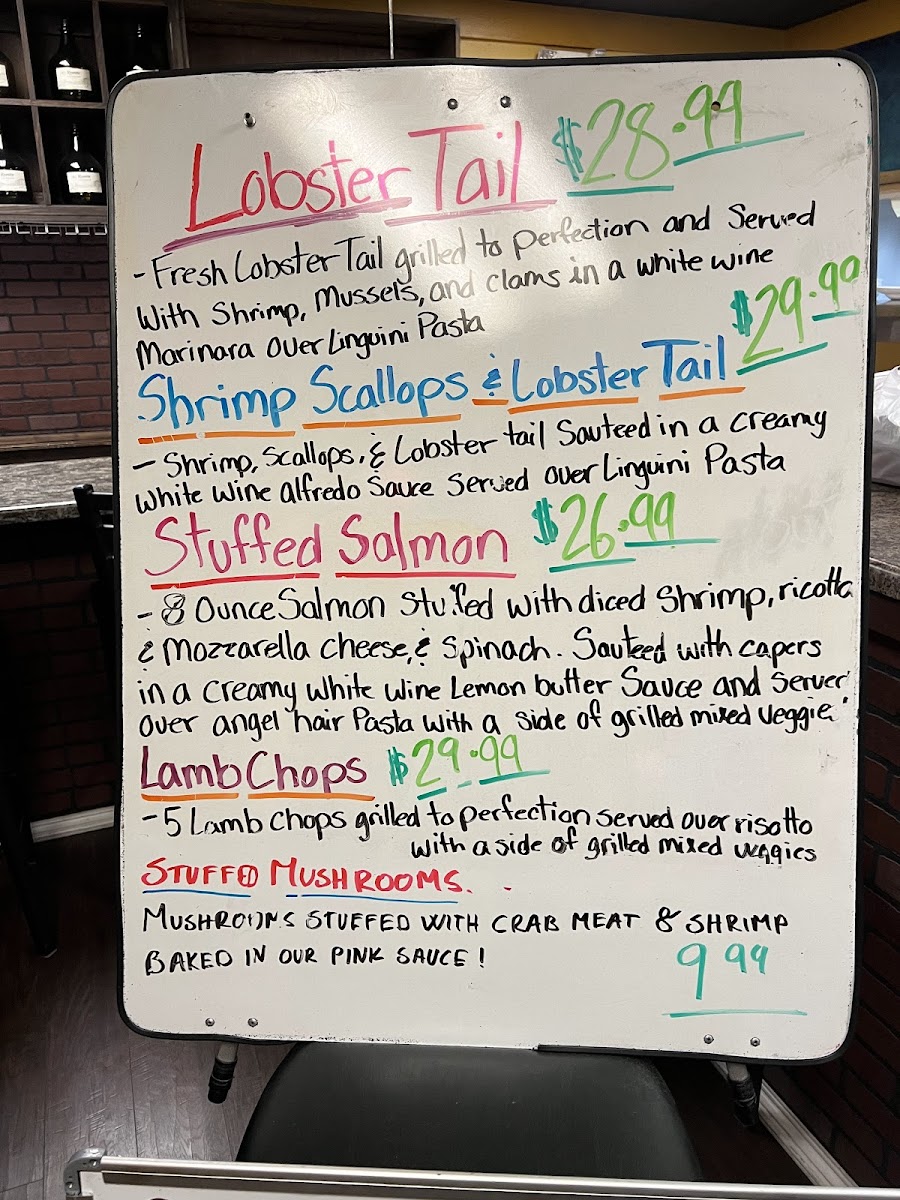 Lobster Tail $28.99
- Fresh Lobster Tail grilled to perfection and Served
With Shrimp, Mussels, and clams in a white wine
Marinara over Linguini Pasta
$29.99
Shrimp Scallops & Lobster Tail
- Shrimp, Scallops, & Lobster tail Sauteed in a creamy
white wine alfredo Sauce Served over Linguini Pasta
Stuffed Salmon $26.99
- 8 Ounce Salmon Stuffed with diced Shrimp, ricotta
& Mozzarella cheese, & Spinach. Sauteed with capers
in a creamy white wine Lemon butter Sauce and Server
over angel hair Pasta with a side of grilled mixed veggie
Lamb Chops $29.99
- 5 Lamb Chops grilled to perfection served over risotto
with a side of grilled mixed veggies
STUFFD MUSHROOMS.
MUSHROOMS STUFFED WITH CRAB MEAT & SHRIMP
BAKED IN OUR PINK SAUCE!
9 99